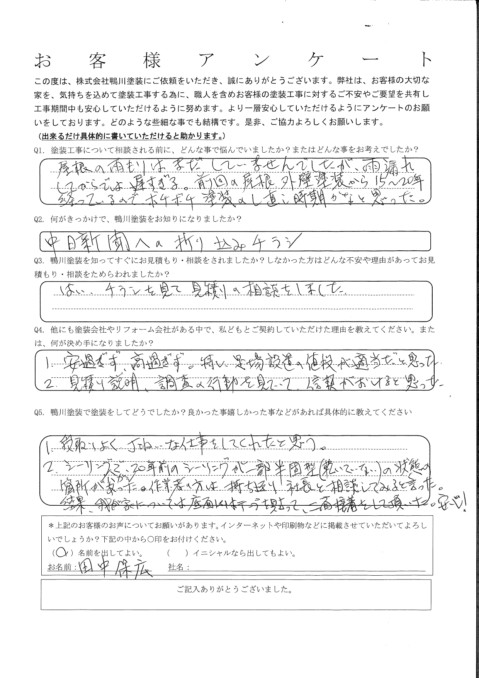 お客様アンケート
この度は、株式会社鴨川塗装にご依頼をいただき、誠にありがとうございます。弊社は、お客様の大切な
家を、気持ちを込めて塗装工事する為に、職人を含めお客様の塗装工事に対するご不安やご要望を共有し
工事期間中も安心していただけるように努めます。より一層安心していただけるようにアンケートのお願
いをしております。どのような些細な事でも結構です。是非、ご協力よろしくお願いします。
(出来るだけ具体的に書いていただけると助かります。)
Q1. 塗装工事について相談される前に、どんな事で悩んでいましたか？またはどんな事をお考えでしたか？
屋根の雨もりはまだしていませんでしたが、雨漏れ
してからでは遅すぎる。前回の屋根、外壁塗装から15〜20年
経っているのでボチボチ塗装のし直し時期かなと思った。
Q2. 何がきっかけで、鴨川塗装をお知りになりましたか？
中日新聞への折り込みチラシ
Q3. 鴨川塗装を知ってすぐにお見積もり・相談をされましたか？しなかった方はどんな不安や理由があってお見
積もり・相談をためらわれましたか？
はい。チラシを見て見積りの相談をしました。
Q4. 他にも塗装会社やリフォーム会社がある中で、私どもとご契約していただけた理由を教えてください。また
は、何が決め手になりましたか？
1. 安過ぎず、高過ぎず。特に足場設置の値段が適当だと思った
2. 見積り説明、調査の行動を見ていて、信頼がおけると思った
Q5. 鴨川塗装で塗装をしてどうでしたか？良かった事嬉しかった事などがあれば具体的に教えてください
1. 段取りよく、ていねいな仕事をしてくれたと思う。
2. シーリングで、20年前のシーリングが一部半固型(乾いていない)の状態の
箇所があった。作業者の方は持ち返り、社長と相談してみると言った。
結果、我が家については底面にはテープを貼って、二面接着をして頂いた。安心！
＊上記のお客様のお声についてお願いがあります。インターネットや印刷物などに掲載させていただいてよろし
いでしょうか？下記の中から〇印をお付けください。
(〇)名前を出してよい。 ( )イニシャルなら出してもよい。
お名前：田中保広 社名：
ご記入ありがとうございました。